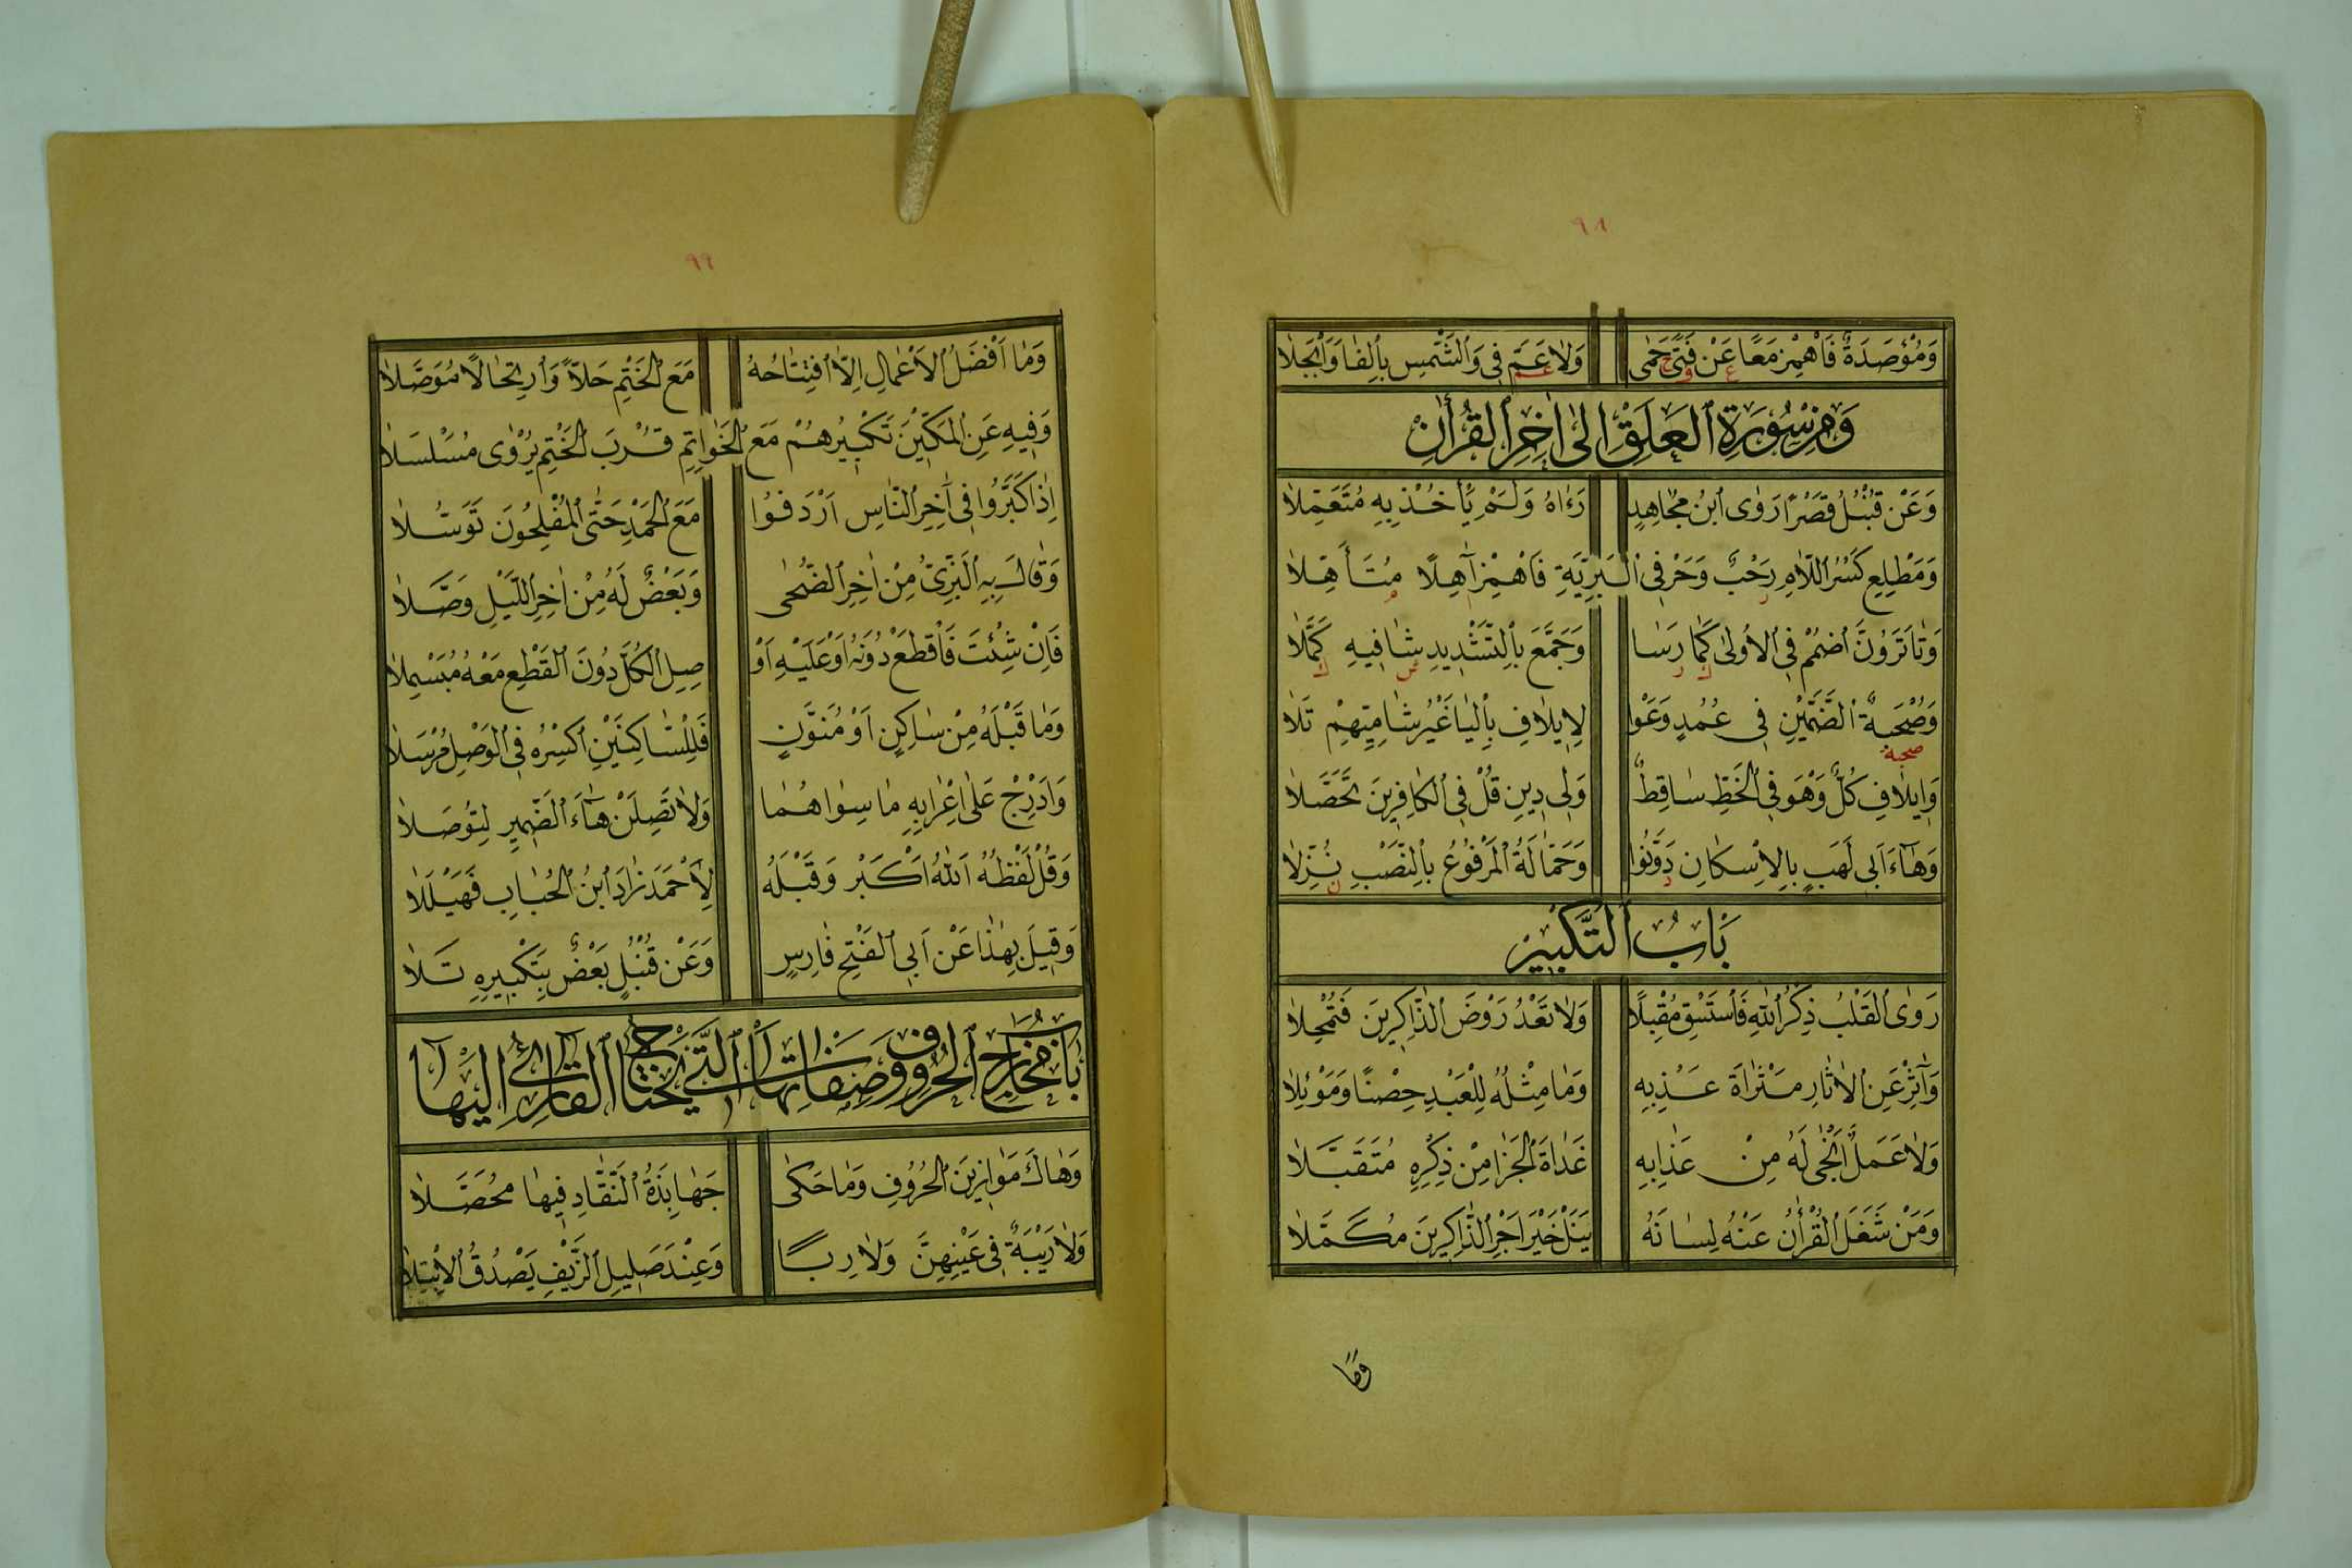 ٩٨
وَمُؤْصَدَةٌ فَاهْمِزْ مَعًا عَنْ فَتًى حَمٰى وَلَا عَمَّ فِى وَالشَّمْسِ بِالْفَا وَانْجَلَا
وَمِنْ سُورَةِ الْعَلَقِ اِلٰى اٰخِرِ الْقُرْاٰنِ
وَعَنْ قُنْبُلٍ قَصْرًا رَوَى ابْنُ مُجَاهِدٍ رَءَاهُ وَلَمْ يَأْخُذْ بِهِ مُتَعَمِّلَا
وَمَطْلِعِ كَسْرُ اللَّامِ رَحْبٌ وَحَرْفَىِ الْبَرِيَّةِ فَاهْمِزْ اٰهِلًا مُتَأَهِّلَا
وَتَا تَرَوُنَّ اضْمُمْ فِى الْاُولٰى كَمَا رَسَا وَجَمَّعَ بِالتَّشْدِيدِ شَافِيهِ كَمَّلَا
وَصُحْبَةٌ الضَّمَّيْنِ فِى عُمُدٍ وَعَوْا لِاِيلَافِ بِالْيَا غَيْرُ شَامِيِّهِمْ تَلَا
صحبة
وَاِيلَافِ كُلٌّ وَهْوَ فِى الْخَطِّ سَاقِطٌ وَلِى دِينِ قُلْ فِى الْكَافِرِينَ تَحَصَّلَا
وَهَاءَ اَبِى لَهَبٍ بِالْاِسْكَانِ دَوَّنُوا وَحَمَّالَةُ الْمَرْفُوعُ بِالنَّصْبِ نُزِّلَا
بَابُ التَّكْبِيرِ
رَوَى الْقَلْبَ ذِكْرُ اللهِ فَاسْتَسْقِ مُقْبِلًا وَلَا تَعْدُ رَوْضَ الذَّاكِرِينَ فَتُمْحِلَا
وَاٰثِرْ عَنِ الْاٰثَارِ مَثْرَاةَ عَذْبِهِ وَمَا مِثْلُهُ لِلْعَبْدِ حِصْنًا وَمَوْئِلَا
وَلَا عَمَلٌ اَنْجٰى لَهُ مِنْ عَذَابِهِ غَدَاةَ الْجَزَا مِنْ ذِكْرِهِ مُتَقَبَّلَا
وَمَنْ شَغَلَ الْقُرْاٰنُ عَنْهُ لِسَانَهُ يَنَلْ خَيْرَ اَجْرِ الذَّاكِرِينَ مُكَمَّلَا
وَمَا
٩٩
وَمَا اَفْضَلُ الْاَعْمَالِ اِلَّا افْتِتَاحُهُ مَعَ الْخَتْمِ حَلًّا وَارْتِحَالًا مُوَصَّلَا
وَفِيهِ عَنِ الْمَكِّيْنَ تَكْبِيرُهُمْ مَعَ الْخَوَاتِمِ قُرْبَ الْخَتْمِ يُرْوٰى مُسَلْسَلَا
اِذَا كَبَّرُوا فِى اٰخِرِ النَّاسِ اَرْدَفُوا مَعَ الْحَمْدِ حَتَّى الْمُفْلِحُونَ تَوَسُّلَا
وَقَالَ بِهِ الْبَزِّىُّ مِنْ اٰخِرِ الضُّحٰى وَبَعْضٌ لَهُ مِنْ اٰخِرِ اللَّيْلِ وَصَّلَا
فَاِنْ شِئْتَ فَاقْطَعْ دُونَهُ اَوْ عَلَيْهِ اَوْ صِلِ الْكُلَّ دُونَ الْقَطْعِ مَعْهُ مُبَسْمِلَا
وَمَا قَبْلَهُ مِنْ سَاكِنٍ اَوْ مُنَوَّنٍ فَلِلسَّاكِنَيْنِ اكْسِرْهُ فِى الْوَصْلِ مُرْسَلَا
وَادْرِجْ عَلٰى اِعْرَابِهِ مَا سِوَاهُمَا وَلَا تَصِلَنْ هَاءَ الضَّمِيرِ لِتُوصَلَا
وَقُلْ لَفْظُهُ اَللهُ اَكْبَرْ وَقَبْلَهُ لِاَحْمَدَ زَادَ ابْنُ الْحُبَابِ فَهَيْلَلَا
وَقِيلَ بِهٰذَا عَنْ اَبِى الْفَتْحِ فَارِسٍ وَعَنْ قُنْبُلٍ بَعْضٌ بِتَكْبِيرِهِ تَلَا
بَابُ مَخَارِجِ الْحُرُوفِ وَصِفَاتِهَا الَّتِى يَحْتَاجُ الْقَارِئُ اِلَيْهَا
وَهَاكَ مَوَازِينَ الْحُرُوفِ وَمَا حَكٰى جَهَابِذَةُ النُّقَّادِ فِيهَا مُحَصَّلَا
وَلَا رَيْبَةٌ فِى عَيْنِهِنَّ وَلَا رِبًا وَعِنْدَ صَلِيلِ الزَّيْفِ يَصْدُقُ الْاِبْتِلَا